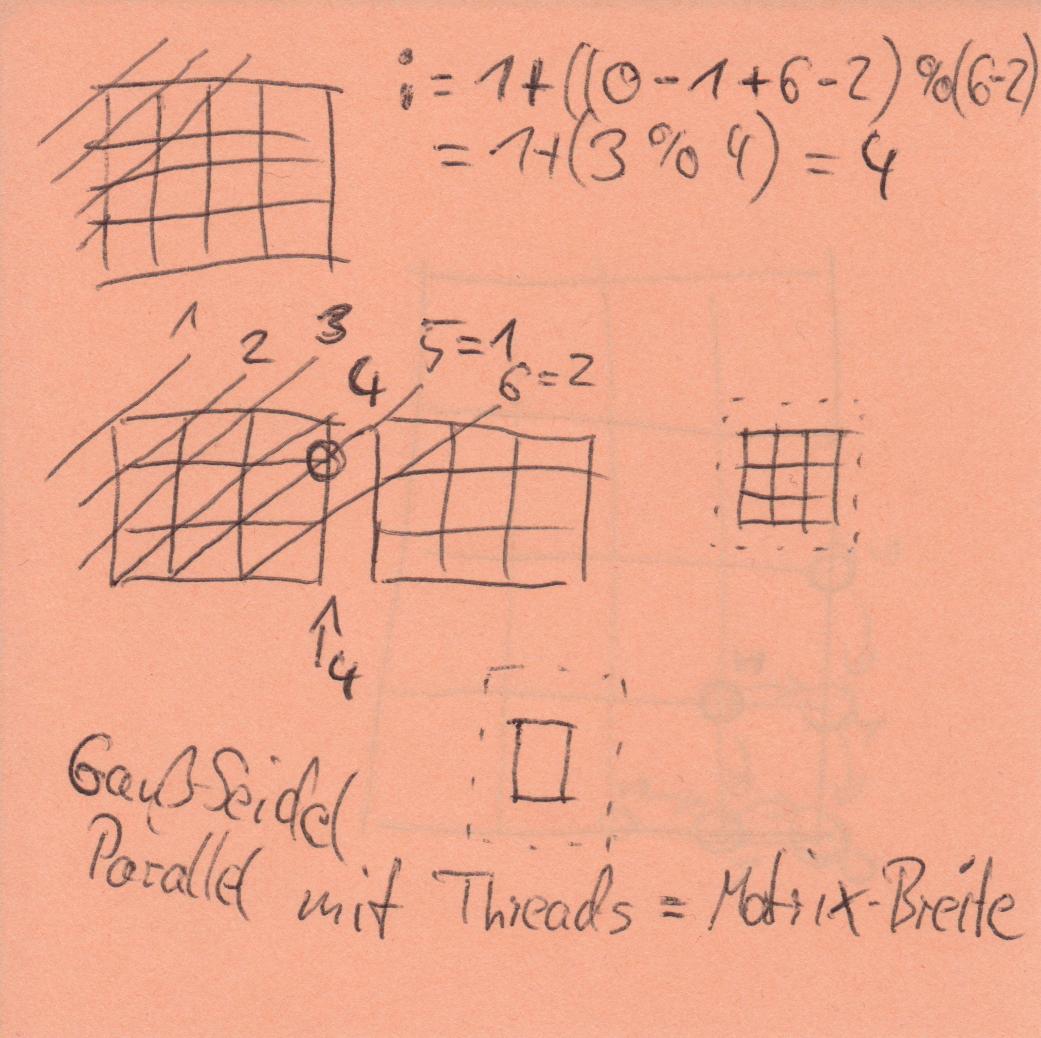 i = 1+((0-1+6-2)%(6-2)
= 1+(3 % 4) = 4
1
2
3
4
5=1
6=2
↑4
Gauß-Seidel
Parallel mit Threads = Matrix-Breite